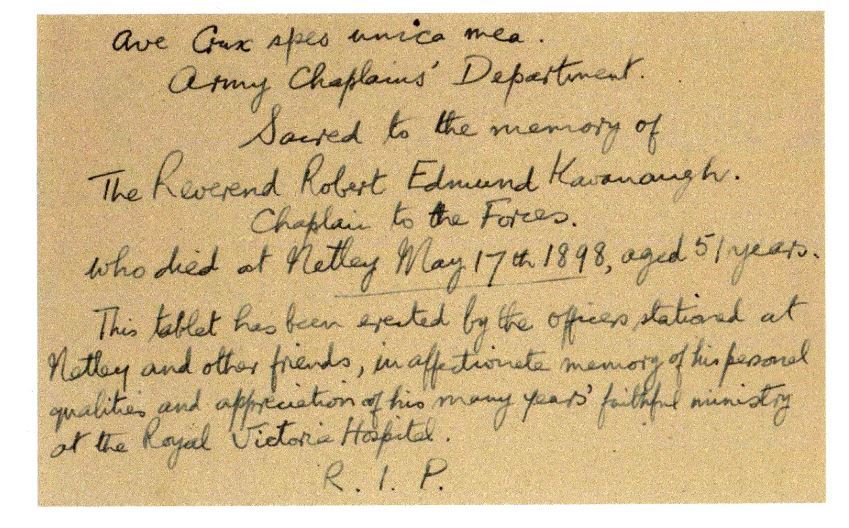 Ave Crux spes unica mea.
Army Chaplains' Department.
Sacred to the memory of
The Reverend Robert Edmund Kavanaugh.
Chaplain to the Forces.
who died at Netley May 17th 1898, aged 51 years.
This tablet has been erected by the officers stationed at
Netley and other friends, in affectionate memory of his personal
qualities and appreciation of his many years' faithful ministry
at the Royal Victoria Hospital.
R. I. P.